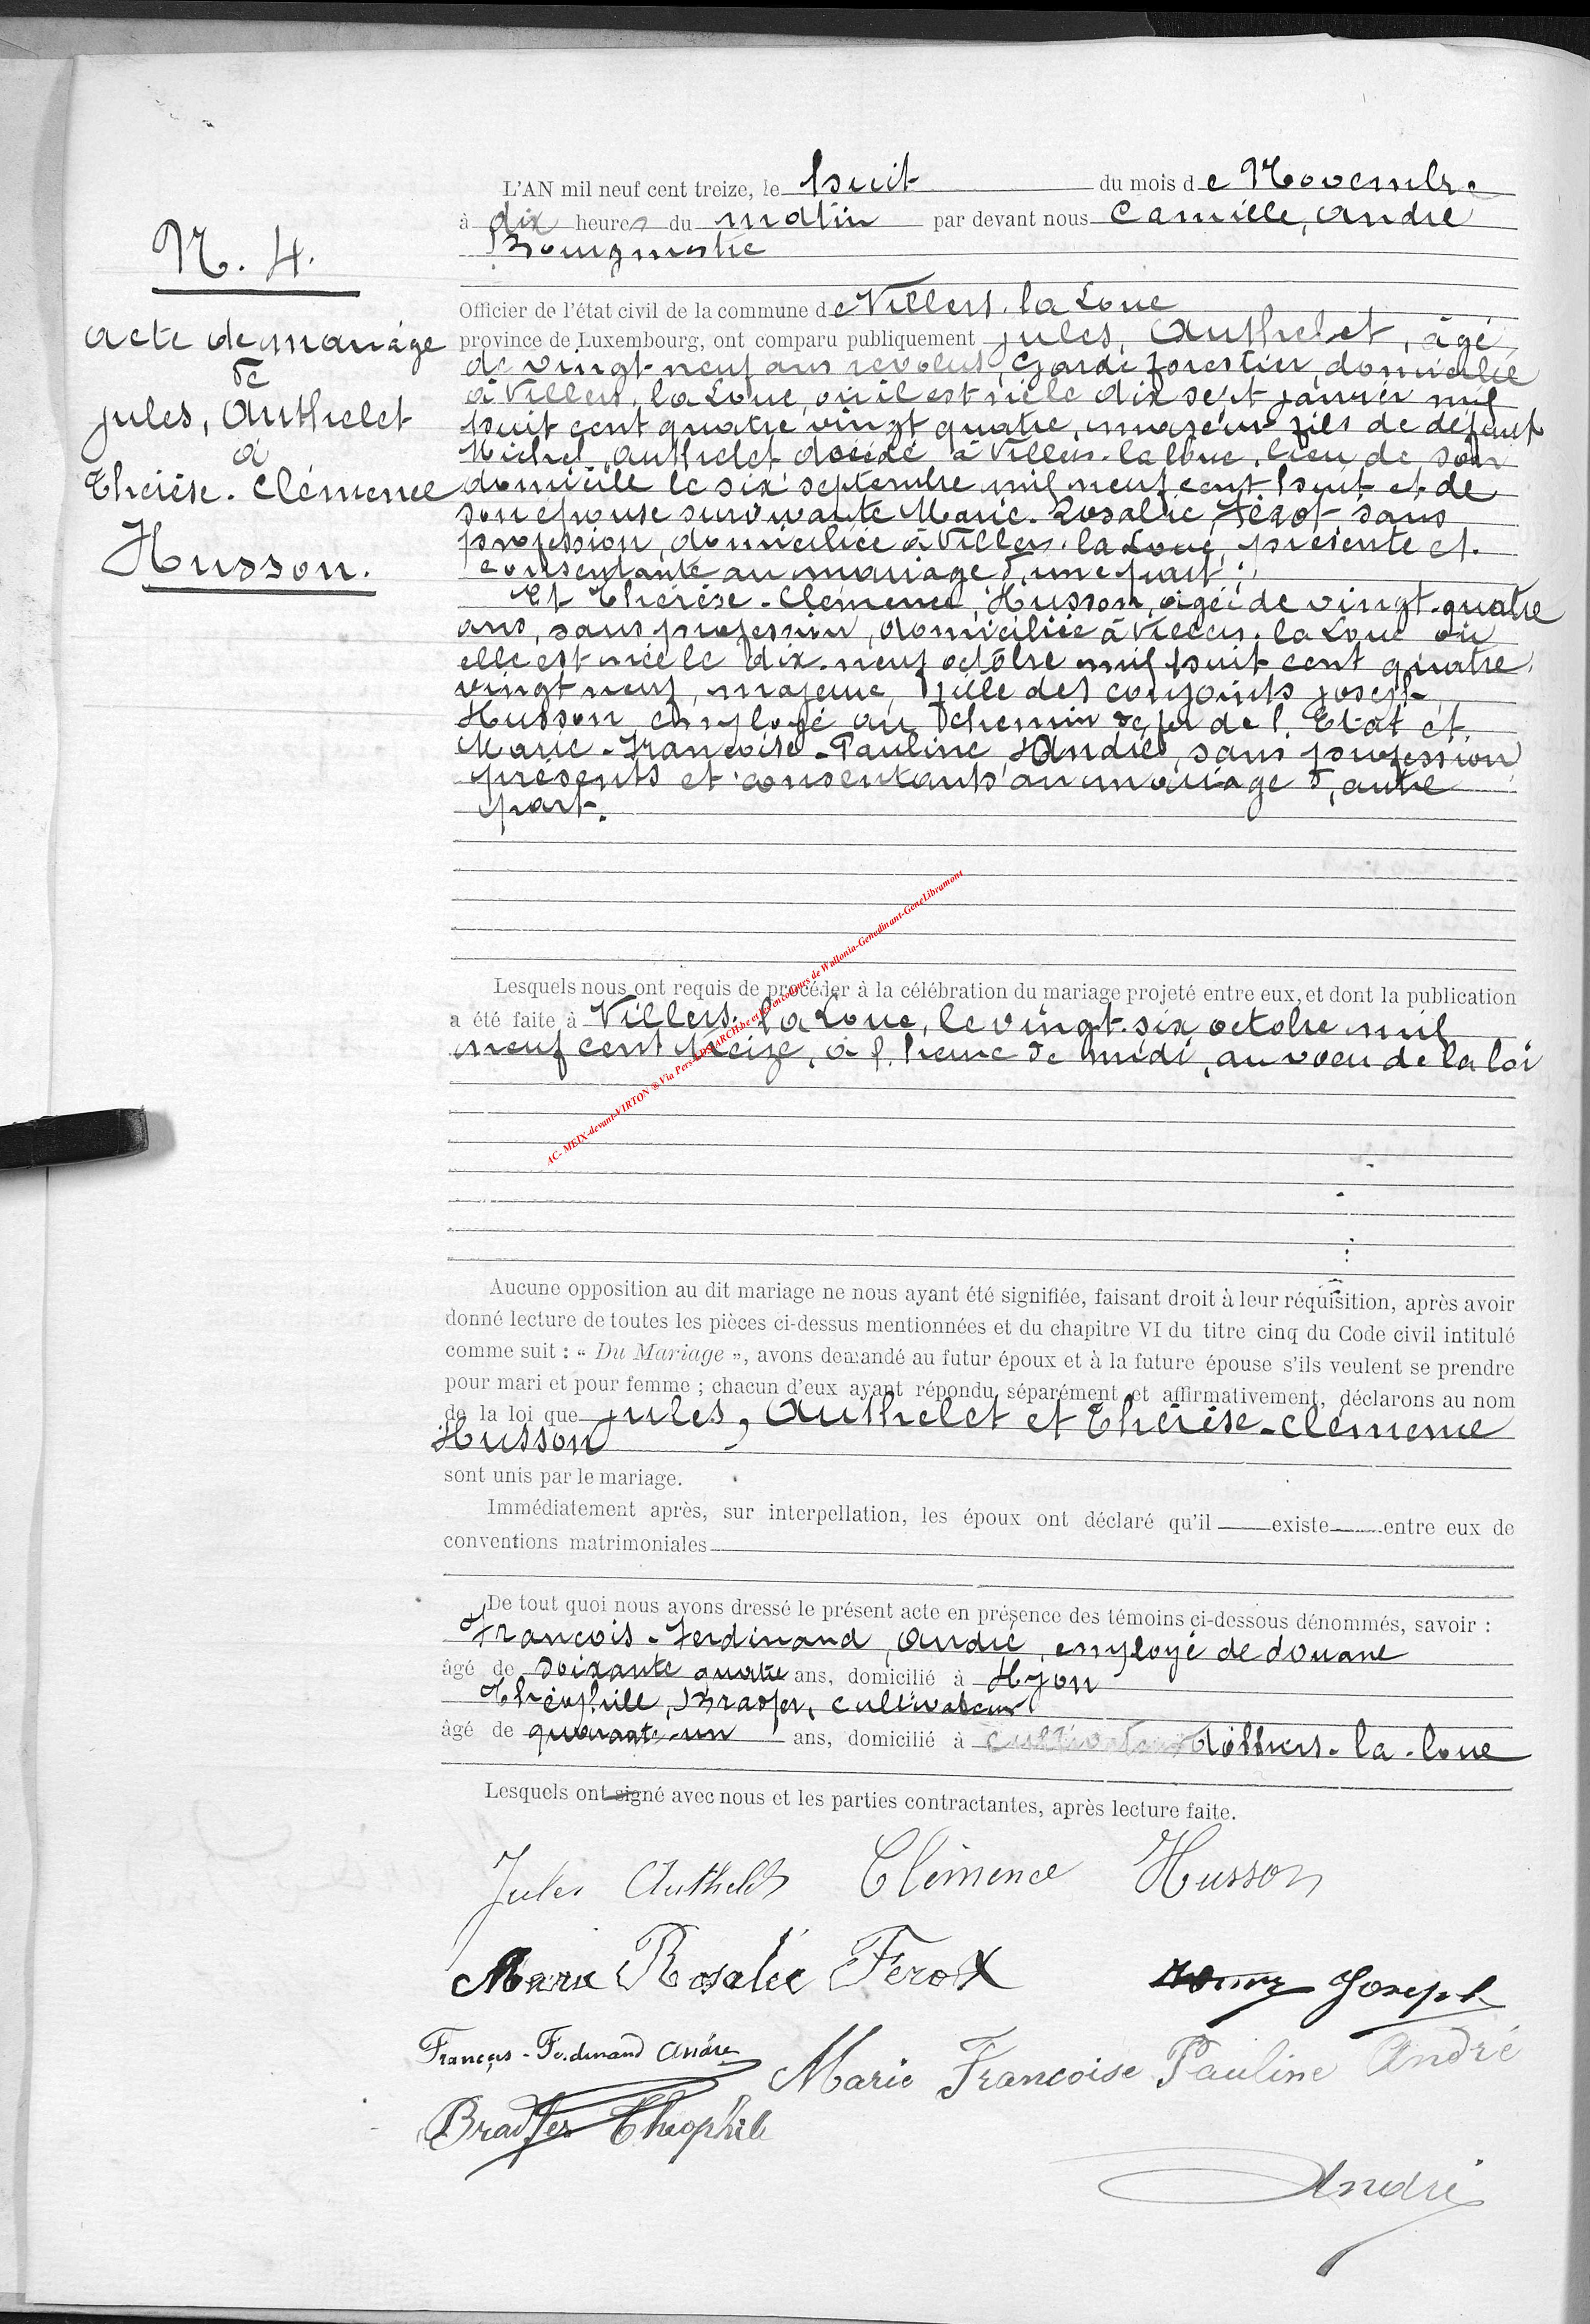 N. 4.
acte de mariage
de
jules, Authelet
à
Thérèse. Clémence
Husson.
L'AN mil neuf cent treize, le huit du mois de Novembre
à dix heures du matin par devant nous Camille, André
Bourgmestre
Officier de l'état civil de la commune de Villers. la Loue
province de Luxembourg, ont comparu publiquement jules, Authelet, âgé
de vingt-neuf ans revolus, Garde forestier, domicilié
à Villers. la Loue, où il est né le dix sept janvier mil
huit cent quatre vingt quatre, majeur fils de défunt
Michel, Authelet décédé à Villers-la loue, lieu de son
domicile le six septembre mil neuf cent huit et de
son épouse survivante Marie-Rosalie Férot, sans
profession, domiciliée à Villers. la Loue, présente et
consentante au mariage d'une part;
Et Thérèse-Clémence, Husson, agée de vingt-quatre
ans, sans profession, domiciliée à Villers. la Loue où
elle est née le dix-neuf octobre mil huit cent quatre
vingt neuf, majeure, fille des conjoints joseph
Husson employé au chemin de fer de l'Etat et
Marie-Françoise-Pauline André, sans profession
présents et consentants au mariage d'autre
part.
Lesquels nous ont requis de procéder à la célébration du mariage projeté entre eux, et dont la publication
a été faite à Villers. la Loue, le vingt-six octobre mil
neuf cent treize, à l'heure de midi, au voeu de la loi
AC- MEIX-devant-VIRTON ® Via Pers-EDS ARCH.be et les concours de Wallonia-Genedinant-GeneLibramont
Aucune opposition au dit mariage ne nous ayant été signifiée, faisant droit à leur réquisition, après avoir
donné lecture de toutes les pièces ci-dessus mentionnées et du chapitre VI du titre cinq du Code civil intitulé
comme suit : « Du Mariage », avons demandé au futur époux et à la future épouse s'ils veulent se prendre
pour mari et pour femme ; chacun d'eux ayant répondu séparément et affirmativement, déclarons au nom
de la loi que jules, Authelet et Thérèse-Clémence
Husson
sont unis par le mariage.
Immédiatement après, sur interpellation, les époux ont déclaré qu'il existe entre eux de
conventions matrimoniales
De tout quoi nous avons dressé le présent acte en présence des témoins ci-dessous dénommés, savoir :
François-Ferdinand, André, employé de douane
âgé de soixante quatre ans, domicilié à Hyon
Théophille, Brasfer, cultivateur
âgé de quarante-un ans, domicilié à Villers-la-loue
Lesquels ont signé avec nous et les parties contractantes, après lecture faite.
Jules Authelet Clémence Husson
Marie Rosalie Ferot Joseph
François-Ferdinand André Marie Francoise Pauline André
Brasfer Théophile
André